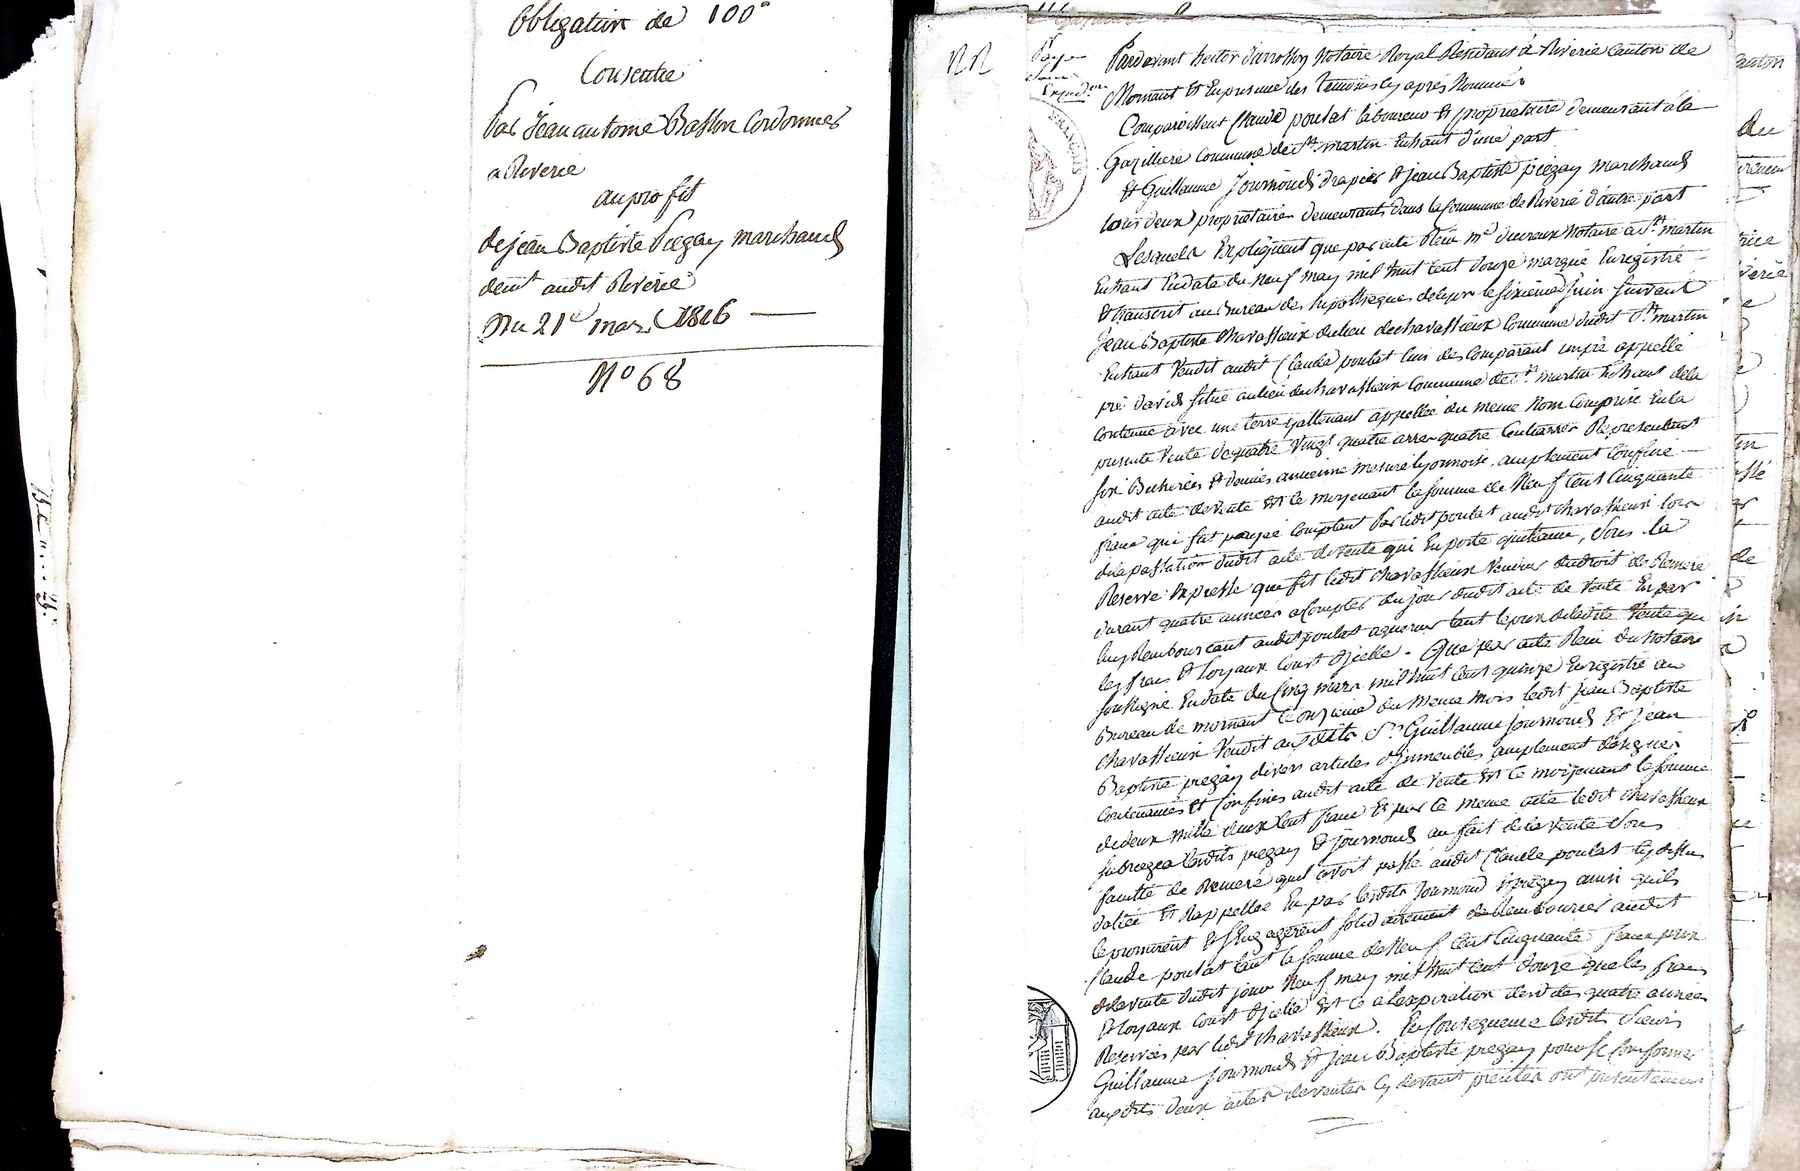 Obligation de 100
Consentie
Par Jean antoine Cordonnier
a Riverie
au profit
de jean Baptiste Piegay marchand
demt audit Riverie
Du 21e mars 1816
No 68
FRANÇAIS
Pardevant notaire Royal Residant à Riverie canton de
Mornant Et En presence des temoins cy après Nommés
Comparoissent Claude poulat laboureur Et propriétaire demeurant à la
Commune de St. martin Enhaut d'une part
Et Guillaume Journoud drapier Et jean Baptiste piegay marchand
tous deux proprietaires demeurants dans la Commune de Riverie d'autre part
Lesquels Expliquent que par acte Reçu me ducreux Notaire à St. martin
Enhaut En date du Neuf may mil huit cent douze Enregistré
Et transcrit au Bureau des hypothèques de Lyon le sixieme juin suivant
Jean Baptiste Chavassieux du lieu de chavassieux Commune dudit St. martin
Enhaut Vendit audit Claude poulat l'un des Comparants un pré appellé
pré David situé au lieu de chavassieux Commune de St. martin Enhaut de la
contenue avec une terre y attenant appellée du meme Nom Comprise En la
presente Vente de quatre Vingt quatre ares quatre Centiares Representant
six Bicherées Et demies ancienne mesure lyonnoise, amplement Confiné
audit acte de Vente Et ce moyenant la somme de Neuf Cent Cinquante
francs qui fut payée comptant Par ledit poulat audit chavassieux lors
de la passation dudit acte de Vente qui En porte quittance, Sous la
Reserve Expresse que fit ledit chavassieux Vendeur du droit de Réméré
durant quatre années a Compter du jour dudit acte de Vente En par
luy Remboursant audit poulat aquereur tant le prix de ladite Vente que
les frais Et loyaux Cousts d'jcelle. Que par acte Reçu du Notaire
soussigné En date du Cinq mars mil huit Cent quinze Enregistré au
Bureau de mornant le onzieme du meme mois ledit jean Baptiste
chavassieux Vendit auxdits Srs Guillaume journoud Et jean
Baptiste piegay divers articles d'jmmeubles amplement designés
Contenancés Et Confinés audit acte de Vente Et ce moyenant la somme
de deux mille deux Cent francs Et par le meme acte ledit chavassieux
subrogea lesdits piegay Et journoud au fait de la Vente Sous
faculté de Réméré quil avoit passé audit Claude poulat cy dessus
datée Et Rappellée En par lesdits Journoud Et piegay ainsi quils
le promirent Et s'Engagerent solidairement de Rembourser audit
Claude poulat tant la somme de Neuf Cent Cinquante francs prix
de la Vente dudit jour Neuf may mil huit Cent douze que les frais
Et loyaux Cousts d'jcelle Et ce à l'expiration desdites quatre années
Reservées par ledit chavassieux. En Consequence lesdits Sieurs
Guillaume journoud Et jean Baptiste piegay pour se Conformer
auxdits deux actes de ventes cy devant ont presentement